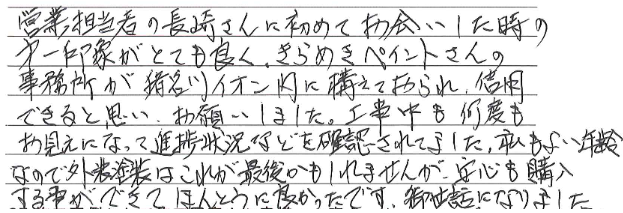 営業担当者の長崎さんに初めてお会いした時の
第一印象がとても良く、きらめきペイントさんの
事務所が猪名川イオン内に構えておられ、信用
できると思い、お願いしました。工事中も何度も
お見えになって進捗状況などを確認されてました。私もよい年齢
なので外装塗装はこれが最後かもしれませんが、安心も購入
する事ができてほんとうに良かったです。御世話になりました